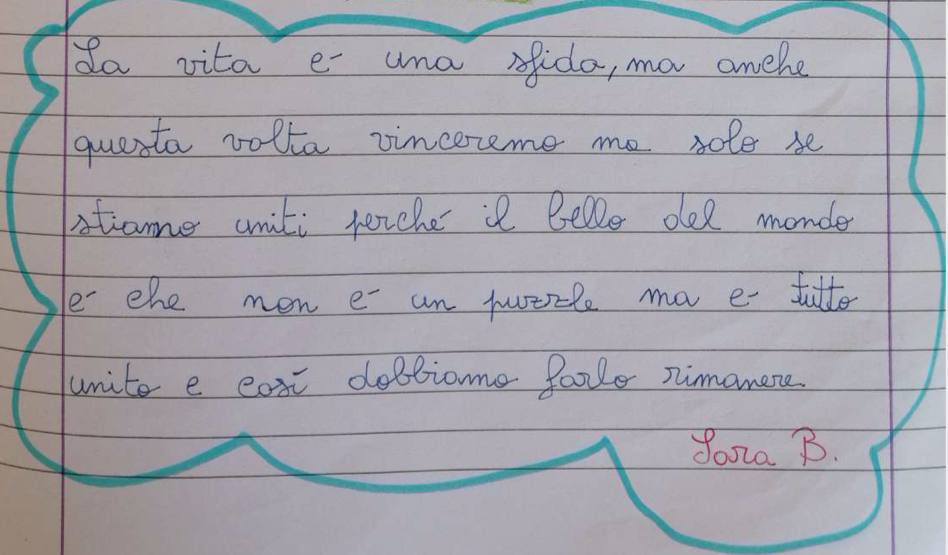 La vita è una sfida, ma anche
questa volta vinceremo ma solo se
stiamo uniti perché il bello del mondo
è che non è un puzzle ma è tutto
unito e così dobbiamo farlo rimanere.
Sara B.